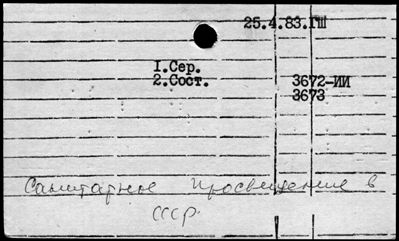 25.4.83.ГШ
1.Сер.
2.Сост.
3672-ИИ
3673
Санитарное просвещение в
СССР.